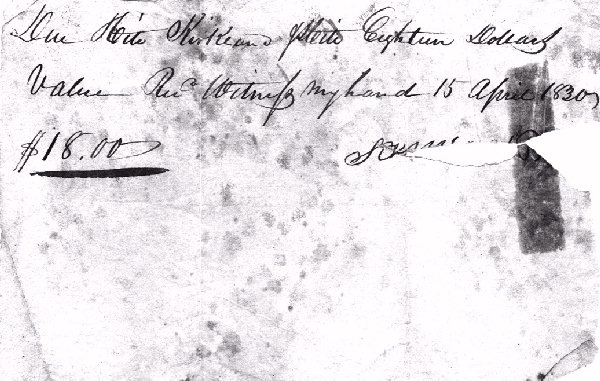 Due Hite Kirkland & Hite Eighteen Dollars
Value Rec Witness my hand 15 April 1830
$18.00